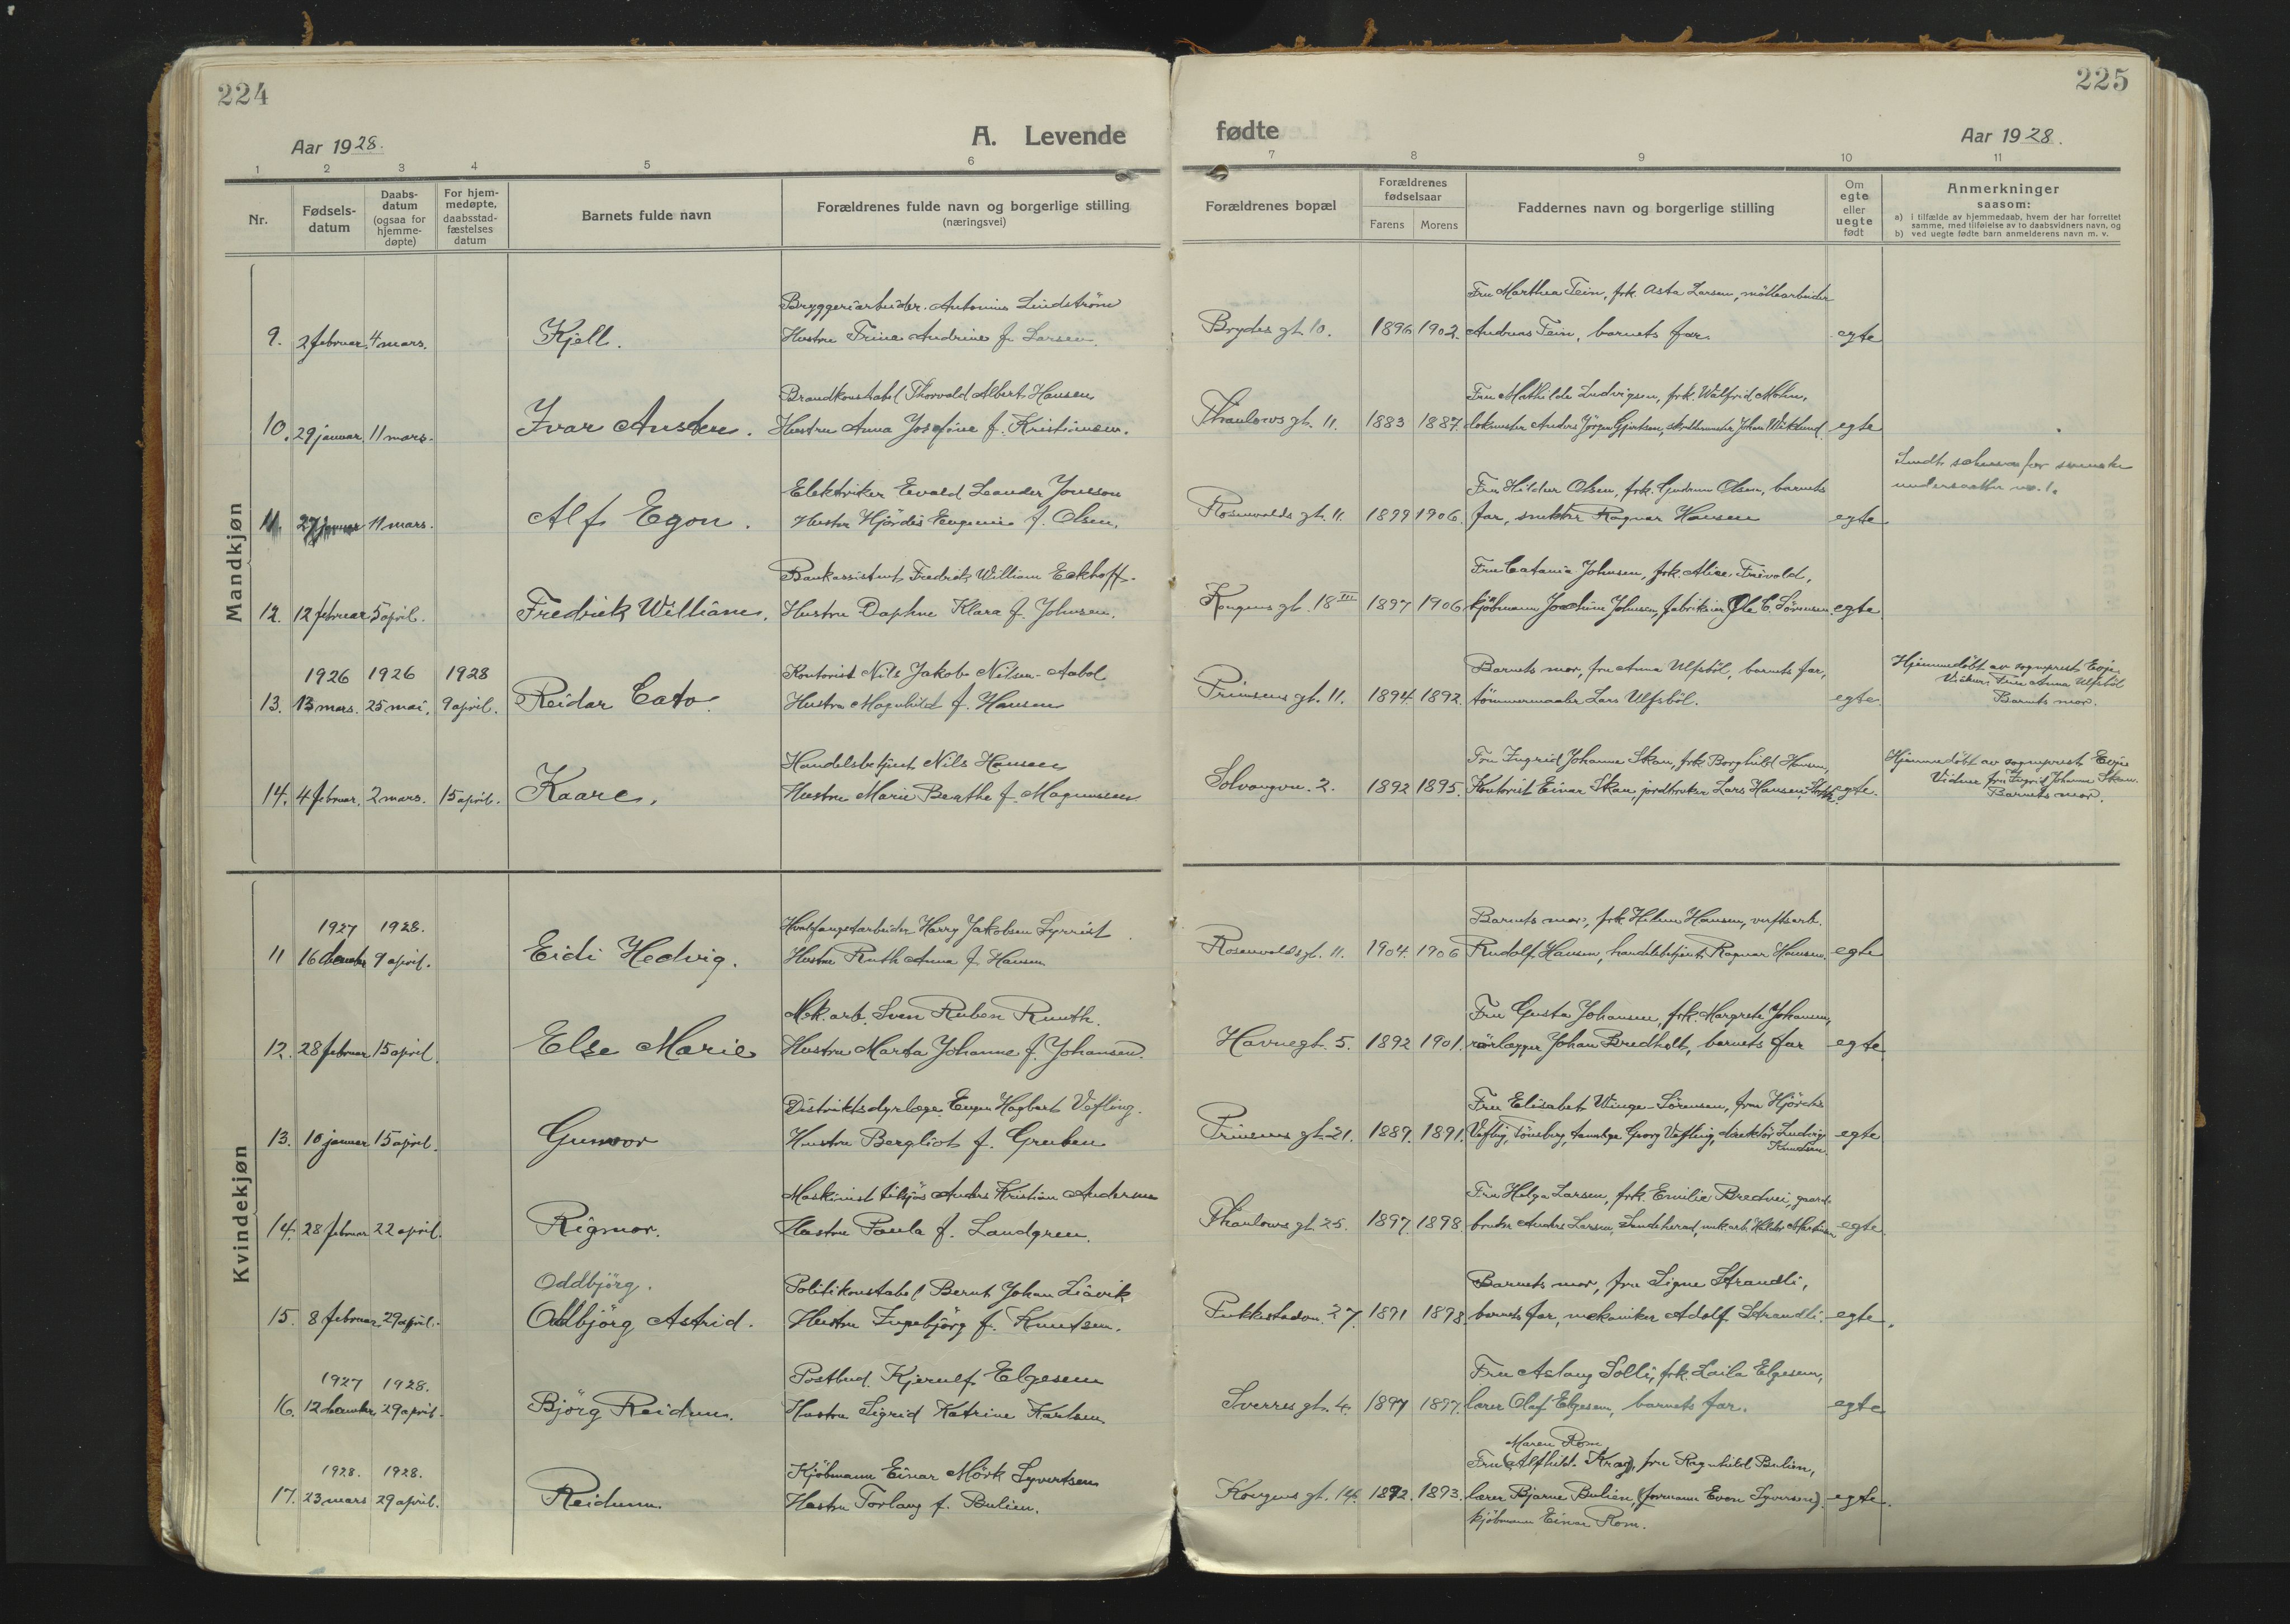 224
Aar 1928.
A. Levende
1 2 3 4 5 6
Nr.
Fødsels-
datum
Daabs-
datum
(ogsaa for
hjemme-
døpte)
For hjem-
medøpte,
daabsstad-
fæstelses
datum
Barnets fulde navn
Forældrenes fulde navn og borgerlige stilling
(næringsvei)
Mandkjøn
Bryggeriarbeider Antonius Lindström
9. 2 februar 4 mars. Kjell. Hustru Trina Andrine f. Larsen.
Brandkonstabel Thorvald Albert Hansen
10. 29 januar 11 mars. Ivar Austen. Hustru Anna Josefine f. Kristiansen.
Elektriker Evald Leander Jonsson
11. 27 januar 11 mars. Alf Egon. Hustru Hjördis Eugenie f. Olsen.
Bankassistent Fredrik William Eckhoff.
12. 12 februar 5 april. Fredrick William. Hustru Daphne Klara f. Johnsen.
1926 1926 1928 Kontorist Nils Jakob Nilsen-Aabol
13. 13 mars. 25 mai. 9 april. Reidar Cato. Hustru Magnhild f. Hansen
Handelsbetjent Nils Hansen
14. 4 februar. 2 mars. 15 april. Kaare. Hustru Marie Beathe f. Magnussen
Kvindekjøn
1927 1928. Hvalfangstarbeider Harry Jakobsen Syrrist
11 16 december 9 april. Eidi Hedvig. Hustru Ruth Anna f. Hansen
Mek. arb. Sven Ruben Ruuth.
12. 28 februar 15 april. Else Marie Hustru Marta Johanne f. Johansen.
Distriktsdyrlæge Eugen Hagbart Vefling.
13. 10 januar 15 april. Gunvor Hustru Bergliot f. Gruben
Maskinist tilsjøs Anders Kristian Andersen
14. 28 februar 22 april. Rigmor. Hustru Paula f. Landgren.
Oddbjörg. Politikonstabel Bernt Johan Liavik
15. 8 februar 29 april. Oddbjörg Astrid. Hustru Ingebjörg f. Knutsen.
1927 1928. Postbud Kjerulf Elgesem
16. 12 december 29 april. Björg Reidun. Hustru Sigrid Katrine Karlsen
1928. 1928. Kjöbmann Einar Mörk Syvertsen
17. 23 mars 29 april. Reidunn Hustru Torlaug f. Bulien.
225
fødte
Aar 1928.
7 8 9 10 11
Forældrenes bopæl
Forældrenes
fødselsaar
Farens Morens
Faddernes navn og borgerlige stilling
Om
egte
eller
uegte
født
Anmerkninger
saasom:
a) i tilfælde av hjemmedaab, hvem der har forrettet
samme, med tilføielse av to daabsvidners navn, og
b) ved uegte fødte barn anmelderens navn m. v.
Fru Marthea Tein, frk. Asta Larsen, möllearbeider
Brydes gt. 10. 1896 1902. Andreas Tein, barnets far. egte
Fru Mathilde Ludvigsen, frk. Walfrid Mohn,
Thaulows gt. 11. 1883 1887. Anders Jörgen Gjertsen, Johan Wiklund. egte
Sendt schema for svenske
undersaatter no. 1.
Fru Hildur Olsen, frk. Gudrun Olsen, barnets
Rosenvolds gt. 11. 1899 1906. far, Ragnar Hansen egte
Fru Catania Johnsen, frk. Alice Trevold,
Kongens gt. 18 III 1897 1906 kjöbmann Joachim Johnsen, fabrikeier Ole C. Sörensen. egte
Barnets mor, fru Anna Ulfsböl, barnets far,
Prinsens gt. 11. 1894 1892. tömmermaaler Lars Ulfsböl. egte.
Hjemmedöbt av sogneprest Evje
Vidner: Frue Anna Ulfsböl
Barnets mor.
Fru Ingrid Johanne Skau, frk. Borghild Hansen,
Solvangvn. 2. 1892 1895. Kontorist Einar Skau, jordbruker Lars Hansen, egte.
Hjemmedöbt av sogneprest Evje
Vidner fru Ingrid Johanne Skau.
Barnets mor.
Barnets mor, frk. Helene Hansen, verftsarb.
Rosenvolds gt. 11. 1904. 1906 Rudolf Hansen, handelsbetjent Ragnar Hansen. egte
Fru Gusta Johansen, frk. Margrete Johansen,
Havnegt. 5. 1892 1901. rörlægger Johan Bredholt, barnets far egte
Fru Elisabet Winge-Sörensen, fru Hjördis
Prinsens gt. 21. 1889. 1891. Vefling, Tönsberg, tannlæge Georg Vefling, direktör Ludvig egte
Knudsen.
Fru Helga Larsen, frk. Emilie Bredvei, gaard-
Thaulows gt. 25. 1897. 1898. bruker Anders Larsen, Sandeherad, mek. arb. egte.
Barnets mor, fru Signe Strandli,
Pukkestadvn. 27. 1891 1898. barnets far, mekaniker Adolf Strandli. egte.
Fru Aslaug Solli, frk. Laila Elgesem,
Sverres gt. 4. 1897 1897. lærer Olaf Elgesem, barnets far. egte
Maren Rom
Fru (Alfhild Krag), fru Ragnhild Bulien,
Kongens gt. 14. 1892. 1893. lærer Bjarne Bulien, (formann Even Syversen). egte.
kjöbmann Einar Rom.